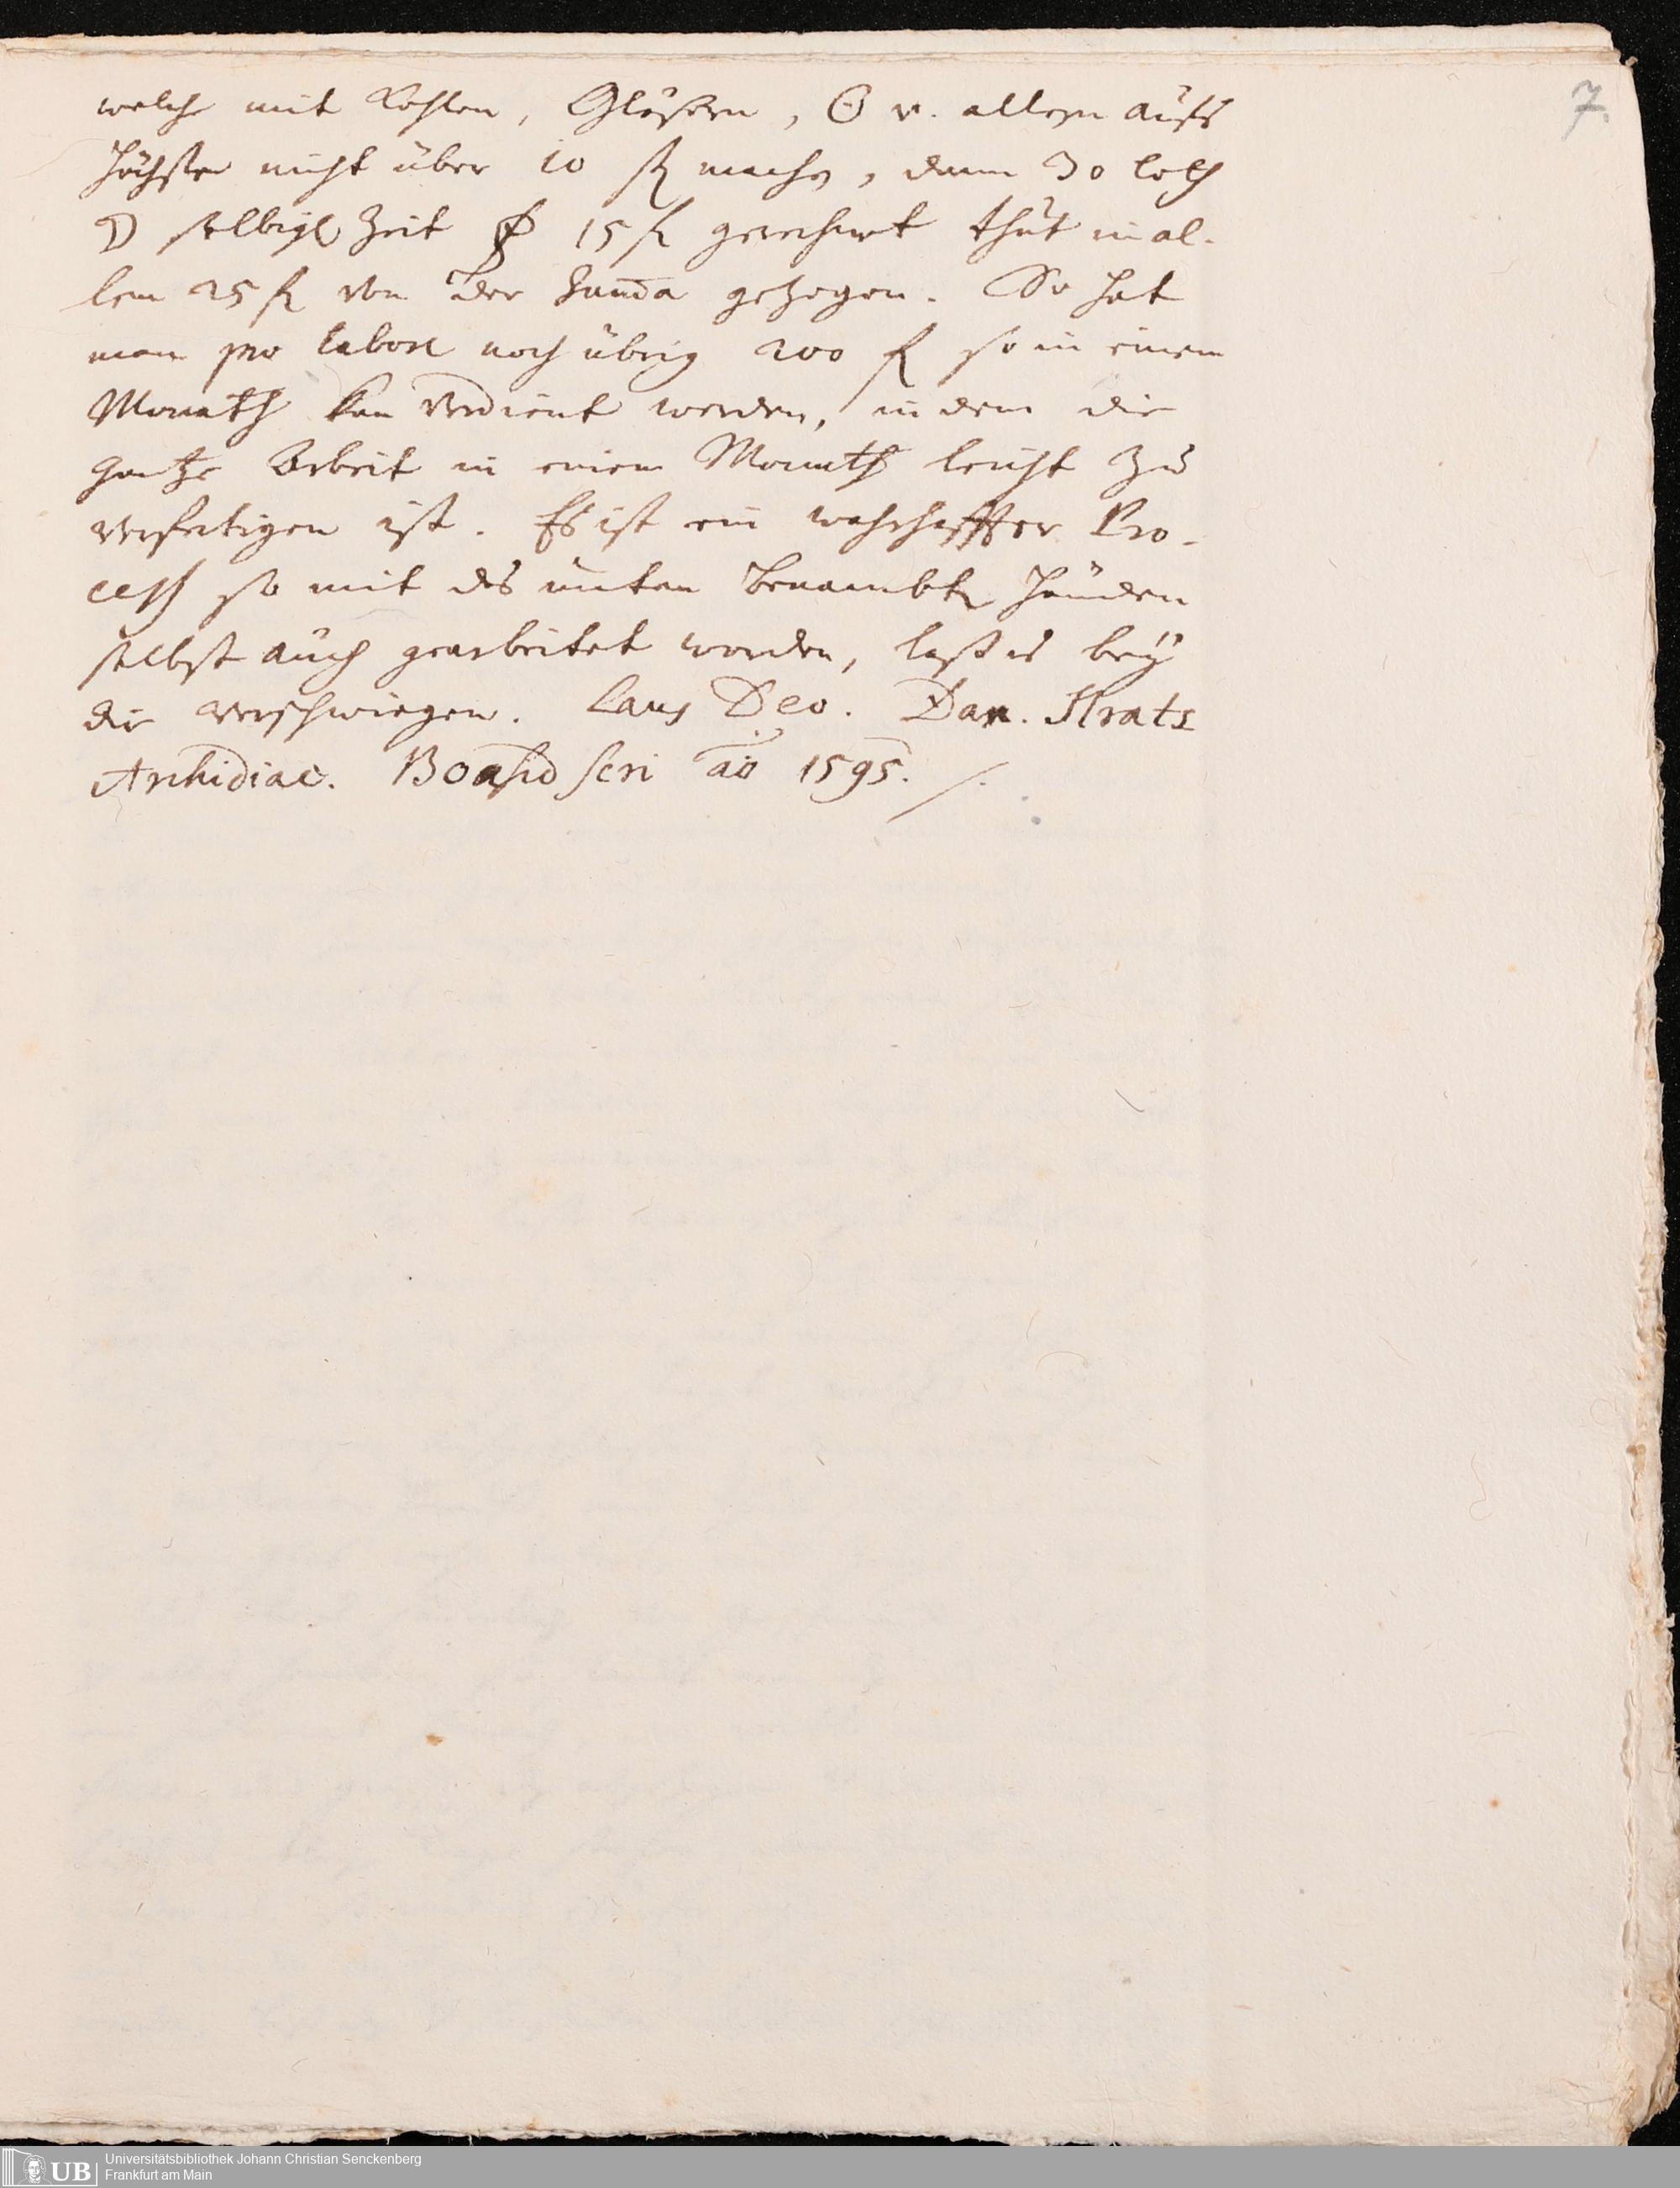 7.
welche mit Kohlen, Gläsern, 🜔 v. allem aufs
höchste nicht über 10 fl machen, dann 30 loth
☽ selbige Zeit 15 fl gerechnet thut in al-
lem 25 fl von der Suma gezogen. So hat
man pro labore noch übrig 200 fl so in einem
Monath kan verdient werden, in dem die
gantze Arbeit in einem Monath leicht zu
verfertigen ist. Es ist ein wahrhaffter Pro-
cess so mit des unten benambten händen
selbst auch gearbeitet worden, laß es bey
dir verschwiegen. Laus Deo. Dan. Strats
Archidiac. ao 1595. /.
UB
Universitätsbibliothek Johann Christian Senckenberg
Frankfurt am Main